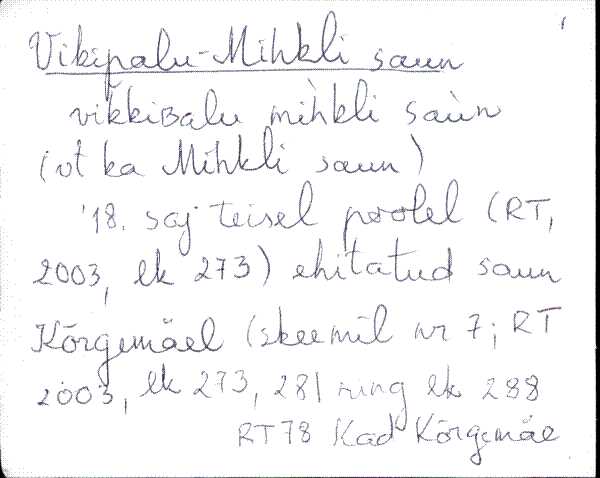 Vikipalu-Mihkli saun
vikkiBalu mìhkli saùn
(vt ka Mihkli saun)
'18. saj teisel poolel (RT,
2003, lk 273) ehitatud saun
Kõrgemäel (skeemil nr 7; RT
2003, lk 273, 281 ning lk 288
RT78 Kad Kõrgemäe